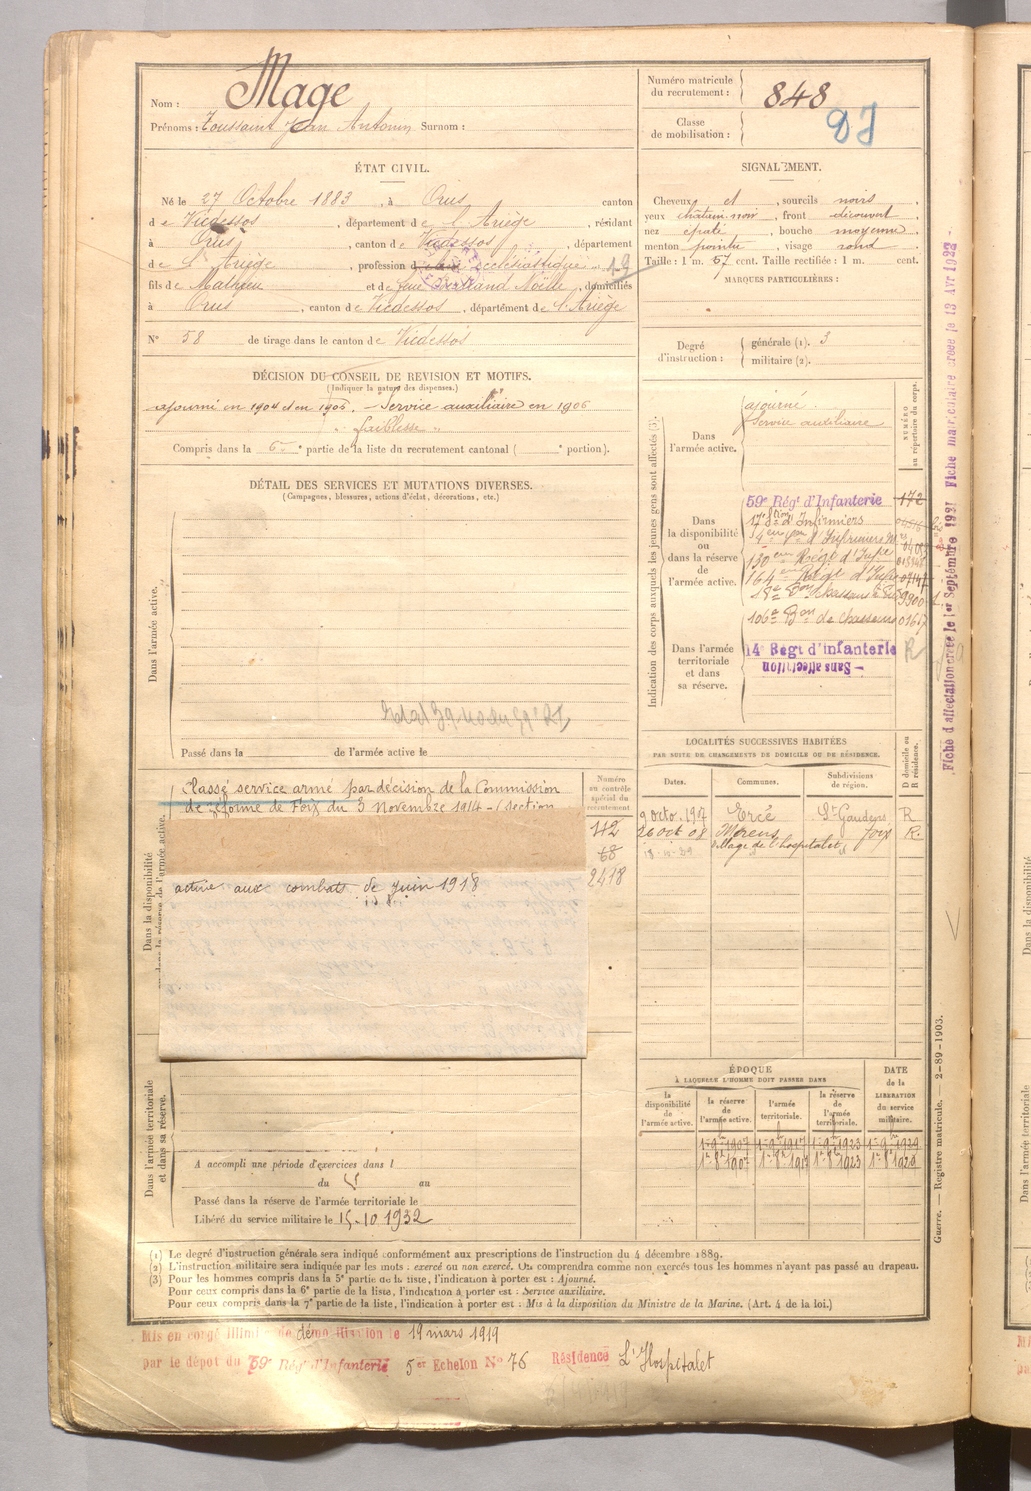 Nom : Mage
Prénoms : Toussaint Jean Antonin Surnom :
Numéro matricule du recrutement : 848
Classe de mobilisation :
ÉTAT CIVIL.
Né le 27 Octobre 1883, à Orus, canton
de Vicdessos, département de l'Ariège, résidant
à Orus, canton de Vicdessos, département
de l'Ariège, profession de ecclésiastique
fils de Mathieu et de feue Noëlle, domiciliés
à Orus, canton de Vicdessos, département de l'Ariège
N° 58 de tirage dans le canton de Vicdessos
DÉCISION DU CONSEIL DE REVISION ET MOTIFS.
(Indiquer la nature des dispenses.)
ajourné en 1904 et en 1905. - Service auxiliaire en 1906
" faiblesse "
Compris dans la 6e partie de la liste du recrutement cantonal ( e portion).
DÉTAIL DES SERVICES ET MUTATIONS DIVERSES.
(Campagnes, blessures, actions d'éclat, décorations, etc.)
Dans l'armée active.
Passé dans la de l'armée active le
SIGNALEMENT.
Cheveux et sourcils noirs
yeux châtain-noir, front découvert
nez épaté, bouche moyenne
menton pointu, visage rond
Taille : 1 m. 57 cent. Taille rectifiée : 1 m. cent.
MARQUES PARTICULIÈRES :
Degré d'instruction : générale (1). 3
militaire (2).
Indication des corps auxquels les jeunes gens sont affectés (3).
NUMÉRO au répertoire du corps.
Dans l'armée active.
ajourné.
Service auxiliaire
Dans la disponibilité ou dans la réserve de l'armée active.
59e Régt d'Infanterie 172
17e Son d'Infirmiers
130eme Rég d'Infie
164eme Rég d'Infie
106e Bon de chasseurs
Dans l'armée territoriale et dans sa réserve.
14e Régt d'infanterie R
- Sans affectation
LOCALITÉS SUCCESSIVES HABITÉES
PAR SUITE DE CHANGEMENTS DE DOMICILE OU DE RÉSIDENCE.
Dates. Communes. Subdivisions de région. D domicile ou R résidence.
9 octo. 1907 Ercé St Gaudens R
26 oct 08 Mérens Foix R.
village de l'hospitalet
Dans la disponibilité ou dans la réserve de l'armée active.
Numéro au contrôle spécial du recrutement
112
68
2418
Classé service armé par décision de la Commission
de réforme de Foix du 3 Novembre 1914 - (section
active aux combats de juin 1918
ÉPOQUE
À LAQUELLE L'HOMME DOIT PASSER DANS
DATE de la LIBÉRATION du service militaire.
la disponibilité de l'armée active.
la réserve de l'armée active.
l'armée territoriale.
la réserve de l'armée territoriale.
1er 9bre 1907 1er 9bre 1917 1er 9bre 1923 1er 9bre 1929
1er 8bre 1907 1er 8bre 1917 1er 8bre 1923 1er 8bre 1929
Dans l'armée territoriale et dans sa réserve.
A accompli une période d'exercices dans l
du au
Passé dans la réserve de l'armée territoriale le
Libéré du service militaire le 15-10 1932
(1) Le degré d'instruction générale sera indiqué conformément aux prescriptions de l'instruction du 4 décembre 1889.
(2) L'instruction militaire sera indiquée par les mots : exercé ou non exercé. On comprendra comme non exercés tous les hommes n'ayant pas passé au drapeau.
(3) Pour les hommes compris dans la 5e partie de la liste, l'indication à porter est : Ajourné.
Pour ceux compris dans la 6e partie de la liste, l'indication à porter est : Service auxiliaire.
Pour ceux compris dans la 7e partie de la liste, l'indication à porter est : Mis à la disposition du Ministre de la Marine. (Art. 4 de la loi.)
Mis en congé illimité de démobilisation le 19 mars 1919
par le dépôt du 59e Régt d'Infanterie 5e Echelon N° 76 Résidence L'Hospitalet
Fiche d'affectation créée le 1er Septembre 1921 Fiche matriculaire créée le 13 Avr 1922 -
Guerre. — Registre matricule. — 2-89-1903.